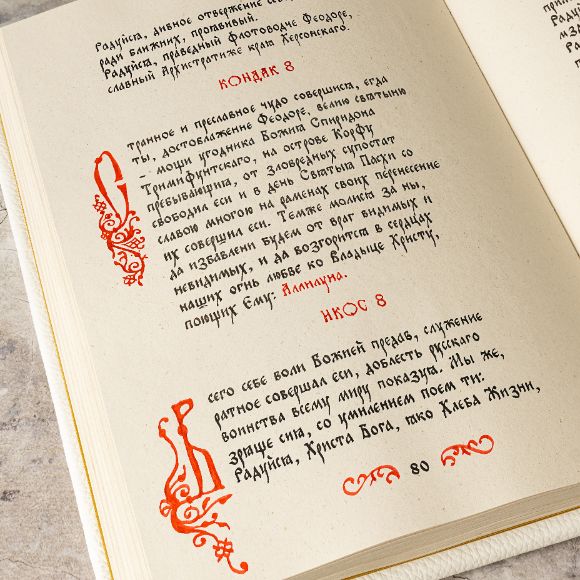 Радуйсѧ, дивное отвержение се
ради ближних, проѧвивый.
Радуйсѧ, праведный Флотоводче Феодоре,
славный Архистратиже краѧ Херсонскаго.
КОНДАК 8
Странное и преславное чудо совершисѧ, егда
ты, достоблажение Феодоре, велию свѧтыню
-- мощи угодника Божиѧ Спиридона
Тримифунтскаго, на острове Корфу
пребывающиѧ, от зловредных супостат
свободил еси и в день Свѧтыѧ Пасхи со
славою многою на раменах своих перенесение
их совершил еси. Темже молисѧ за ны,
да избавлени будем от враг видимых и
невидимых, и да возгоритсѧ в сердцах
наших огнь любве ко Владыце Христу,
поющих Ему: Аллилуиа.
ИКОС 8
Всего себе воли Божией предав, служение
ратное совершал еси, доблесть русскаго
воинства всему миру показуѧ. Мы же,
зрѧще сиѧ, со умилением поем ти:
Радуйсѧ, Христа Бога, ѧко Хлеба Жизни,
80